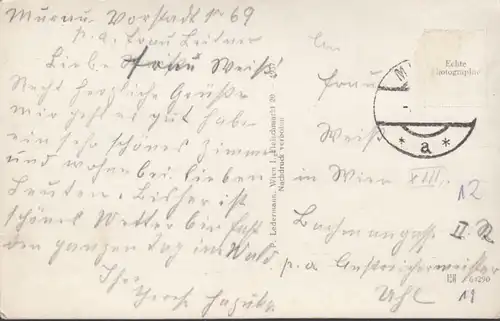 Murau Vorstadt No 69
p. a. Frau Leitner
Liebe Frau Weiß!
Recht herzliche Grüße
mir geht es gut habe
ein sehr schönes Zimmer
und wohne bei lieben
Leuten. Bisher ist
schönes Wetter bin fast
den ganzen Tag im Wald
Ihre
P. Ledermann, Wien I., Fleischmarkt 20
Nachdruck verboten
An
Frau
Weiß
in Wien XIII.
12
II.
p. a. Anstreichermeister
Uhl
11
61290
Echte
Photographie
M
* a *